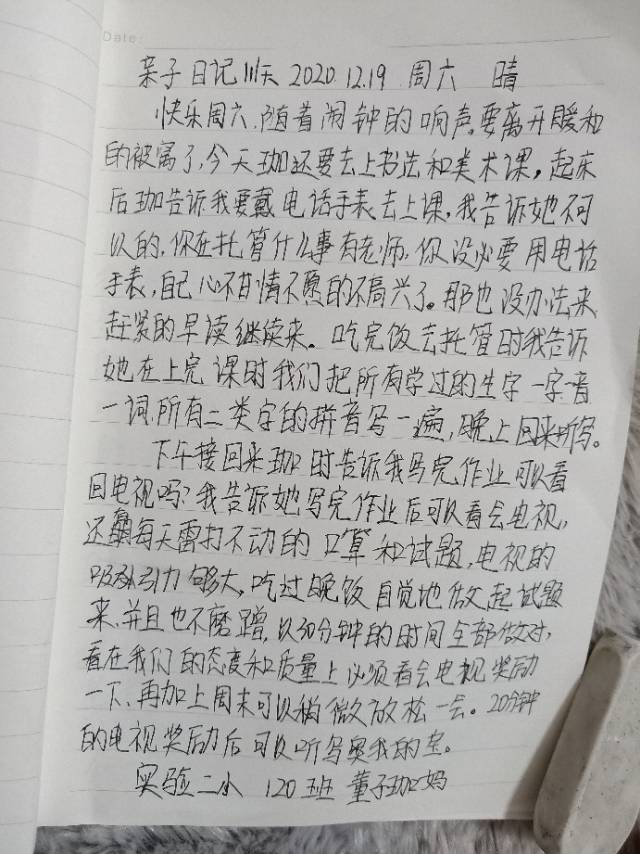 Date:
亲子日记 111天 2020.12.19 周六 晴
快乐周六,随着闹钟的响声,要离开暖和
的被窝了,今天珈还要去上书法和美术课,起床
后珈告诉我要戴电话手表去上课,我告诉她不可
以的,你在托管什么事有老师,你没必要用电话
手表,自己心不甘情不愿的不高兴了。那也没办法来
赶紧的早读继续来。吃完饭去托管时我告诉
她在上完课时我们把所有学过的生字一字一音
一词,所有二类字的拼音写一遍,晚上回来听写。
下午接回来珈时告诉我写完作业可以看
回电视吗?我告诉她写完作业后可以看会电视,
还有每天雷打不动的口算和试题,电视的
吸引力够大,吃过晚饭自觉地做起试题
来,并且也不磨蹭,以30分钟的时间全部做对,
看在我们的态度和质量上必须看会电视奖励
一下、再加上周末可以稍微放松一会。20分钟
的电视奖励后可以听写奥我的宝。
实验二小 120班 董子珈妈